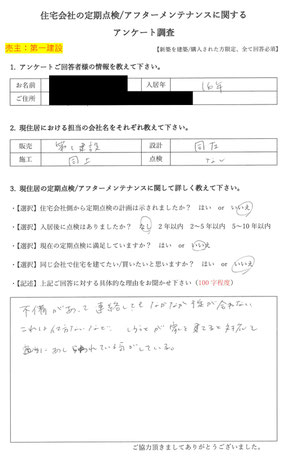 住宅会社の定期点検/アフターメンテナンスに関する
アンケート調査
売主：第一建設
【新築を建築/購入された方限定、全て回答必須】
1. アンケートご回答者様の情報を教えて下さい。
お名前 入居年 16年
ご住所
2. 現住居における担当の会社名をそれぞれ教えて下さい。
販売 第一建設 設計 同左
施工 同上 点検 なし
3. 現住居の定期点検/アフターメンテナンスに関して詳しく教えて下さい。
・【選択】住宅会社側から定期点検の計画は示されましたか？ はい or いいえ
・【選択】入居後に点検はありましたか？ なし 2年以内 2～5年以内 5～10年以内
・【選択】現在の定期点検に満足していますか？ はい or いいえ
・【選択】同じ会社で住宅を建てたい/買いたいと思いますか？ はい or いいえ
・【記述】上記ご回答に対する具体的な理由をお聞かせ下さい（100字程度）
不備があって連絡してもなかなか話が合わない
これは仕方ないなど、
されている気がしている。
ご協力頂きましてありがとうございました。